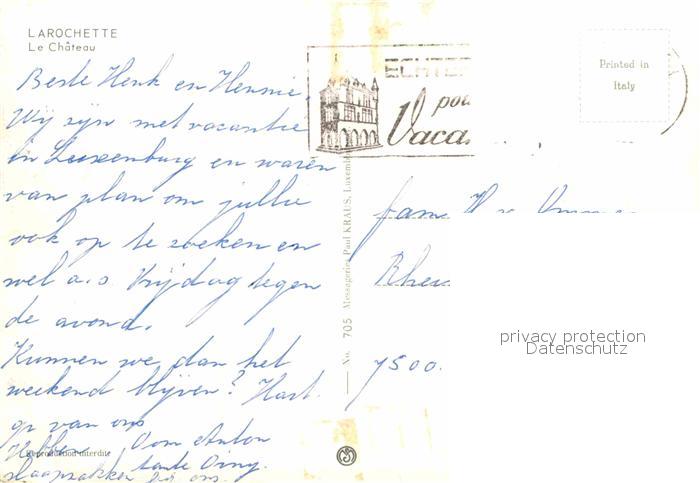 LAROCHETTE
Le Château
Beste Henk en Hennie,
Wij zijn met vacantie
in Luxenburg en waren
van plan om jullie
ook op te zoeken en
wel a.s. Vrijdag tegen
de avond.
Kunnen we dan het
weekend blijven? Hart.
gr van ons
Oom Anton
tante Diny.
Hebben
slaapzakken bij ons.
Reproduction interdite
No. 705 Messageries Paul KRAUS, Luxemb
ECHTER
pou
Vaca
Printed in
Italy
fam H v
Rhe
7500.
privacy protection
Datenschutz